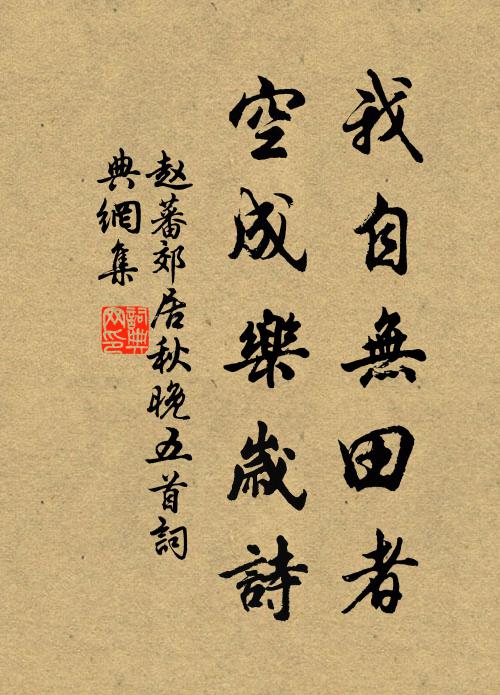 我自無田者
空成樂歲詩
赵蕃郊居秋晚五首詞
典網集
詞典
网印